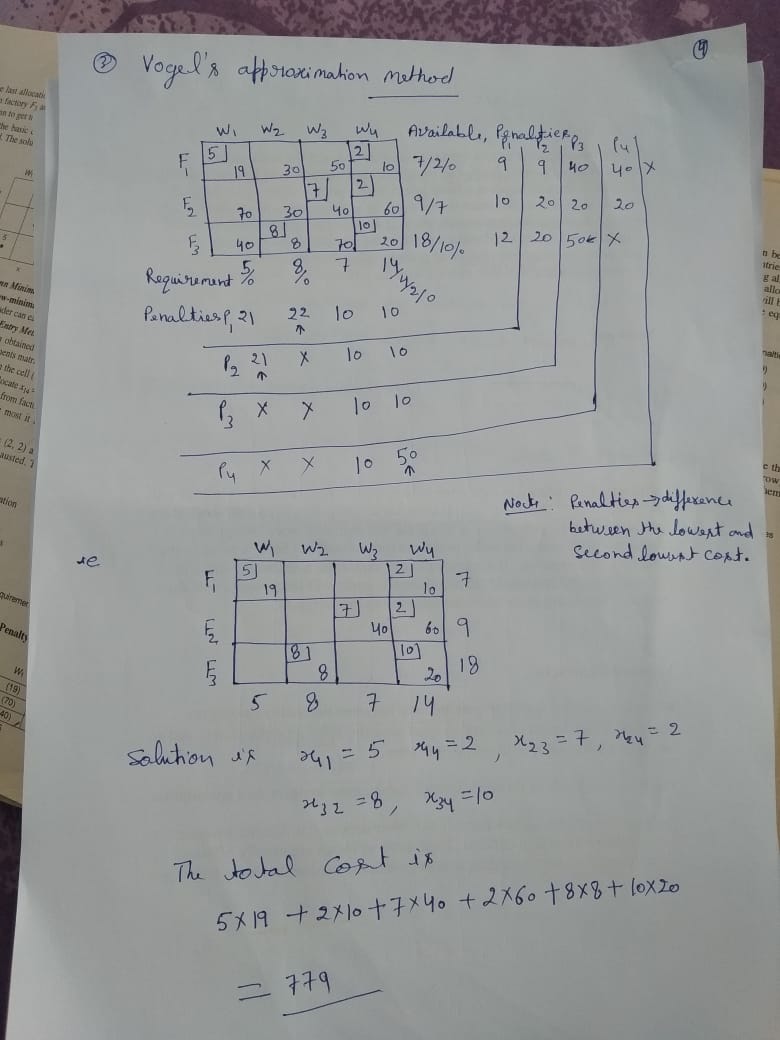 ③ Vogel's approximation method
④
W₁ W₂ W₃ W₄ Available, Penalties
P₁ P₂ P₃ P₄
F₁ 5 19 30 50 2 10 7/2/0 9 9 40 40 X
F₂ 70 30 7 40 2 60 9/7 10 20 20 20
F₃ 40 8 8 70 10 20 18/10/0 12 20 50 X
Requirement 5/0 8/0 7 14/4/2/0
Penalties P₁ 21 22 10 10
↑
P₂ 21 X 10 10
↑
P₃ X X 10 10
P₄ X X 10 50
↑
Note: Penalties → difference
between the lowest and
Second lowest cost.
ie
W₁ W₂ W₃ W₄
F₁ 5 19 2 10 7
F₂ 7 40 2 60 9
F₃ 8 8 10 20 18
5 8 7 14
Solution is x₁₁ = 5 x₁₄ = 2, x₂₃ = 7, x₂₄ = 2
x₃₂ = 8, x₃₄ = 10
The total cost is
5×19 + 2×10 + 7×40 + 2×60 + 8×8 + 10×20
= 779